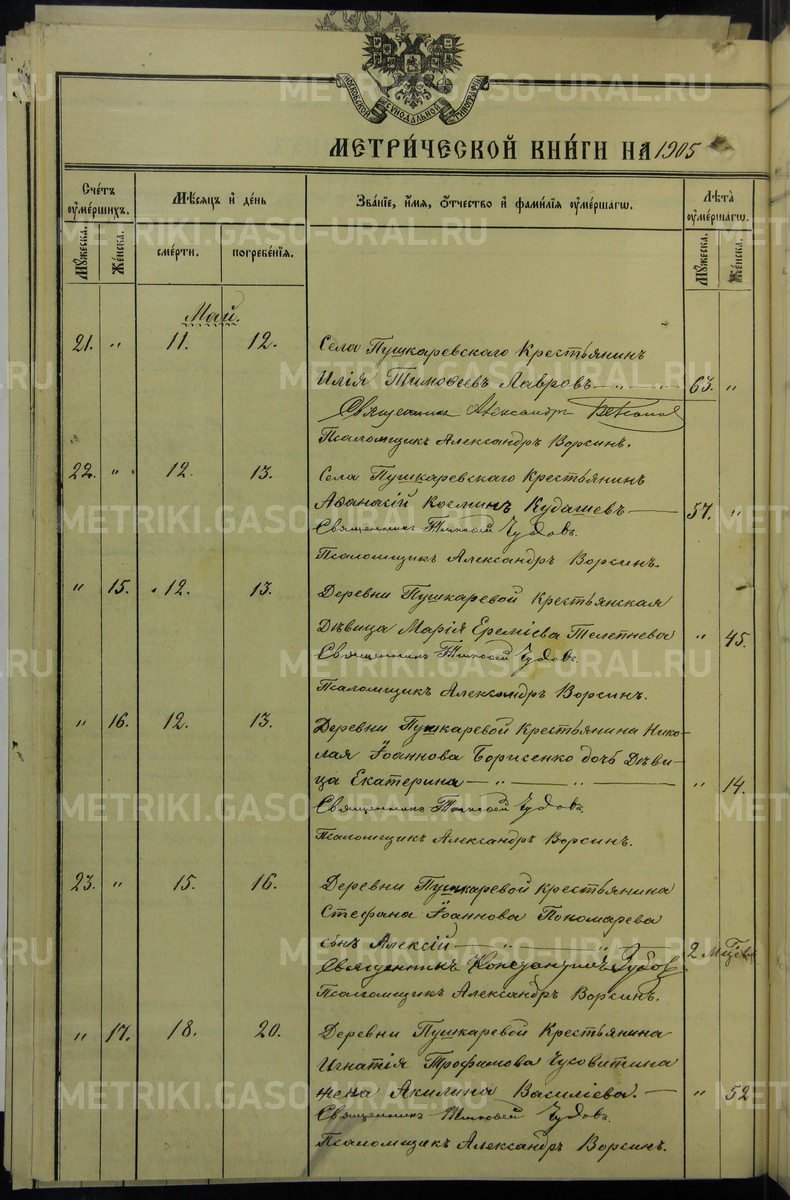 МОСКОВСКОЙ СѴНОДАЛЬНОЙ ТИПОГРАФІИ
МЕТРИ́ЧЕСКОЙ КНИ́ГИ НА 1905
Сче́тъ ᲂу҆ме́ршихъ. Мѣ́сяцъ и҆ де́нь Зва́нїе, и҆́мѧ, ѻ҆́тчество и҆ фами́лїѧ ᲂу҆ме́ршагѡ. Лѣ́та ᲂу҆ме́ршагѡ.
Му́жеска. Же́нска. сме́рти. погребе́нїѧ. Му́жеска. Же́нска.
Май.
21. " 11. 12. Села Пушкаревскаго Крестьянинъ
Илія Тимоѳеевъ Лавровъ — " — " 63. "
Священникъ Александръ
Псаломщикъ Александръ Ворсинъ.
22. " 12. 13. Села Пушкаревскаго Крестьянинъ
Аѳанасій Косминъ Кудашевъ — 57. "
Священникъ Тимоѳей Чудовъ.
Псаломщикъ Александръ Ворсинъ.
" 15. 12. 13. Деревни Пушкаревой Крестьянская
Дѣвица Марія Ереміева Телепнева " 45.
Священникъ Тимоѳей Чудовъ.
Псаломщикъ Александръ Ворсинъ.
" 16. 12. 13. Деревни Пушкаревой Крестьянина Нико-
лая Іоаннова Борисенко дочь Дѣви-
ца Екатерина — " — " — " 14.
Священникъ Тимоѳей Чудовъ.
Псаломщикъ Александръ Ворсинъ.
23. " 15. 16. Деревни Пушкаревой Крестьянина
Стефана Іоаннова Пономарева
сынъ Алексій — " — " 2 Мѣсяца
Священникъ Константинъ
Псаломщикъ Александръ Ворсинъ.
" 17. 18. 20. Деревни Пушкаревой Крестьянина
Игнатія Трофимова Чусовитина
жена Акилина Василіева. — " 52
Священникъ Тимоѳей Чудовъ.
Псаломщикъ Александръ Ворсинъ.
METRIKI.GASO-URAL.RU